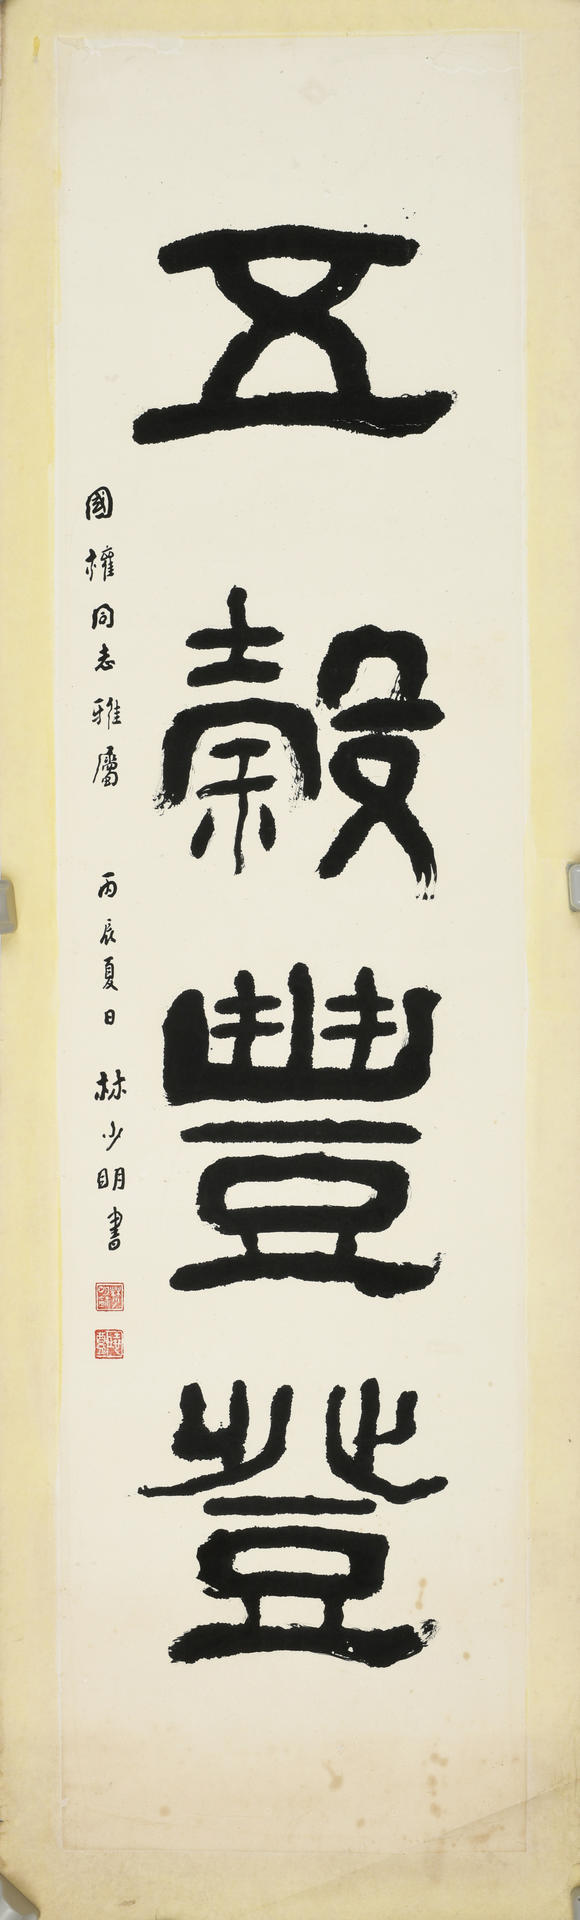 五穀豐登
國權同志雅屬 丙辰夏日 林少明書